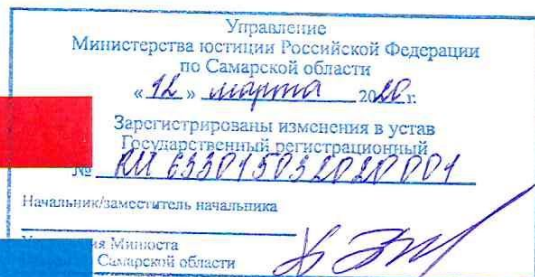 Управление
Министерства юстиции Российской Федерации
по Самарской области
« 12 » марта 2020 г.
Зарегистрированы изменения в устав
Государственный регистрационный
№ RU 633015032020001
Начальник/заместитель начальника
ия Минюста
Самарской области